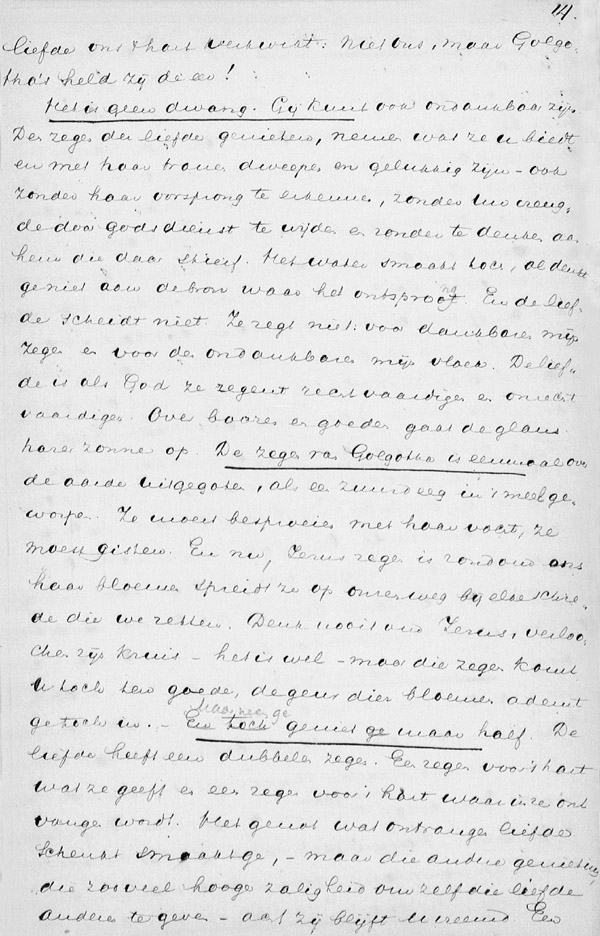 14.
liefde ons 't hart verkwikt: Niet ons, maar Golgo-
tha's held zij de eer!
Het is geen dwang. Gij kunt ook ondankbaar zijn
Den zegen der liefde genieten, nemen wat ze u biedt
en met haar trouw dweepen en gelukkig zijn - ook
zonder haar oorsprong te erkennen, zonder uw vreug-
de door godsdienst te wijden en zonder te denken aan
hem die daar stierf. Het water smaakt toch, al denkt
geniet aan de bron waar het ontsproot. En de lief-
de scheidt niet. Ze zegt niet: voor dankbaren mijn
zegen en voor den ondankbaren mijn vloek. De lief-
de is als God ze zegent rechtvaardigen en onrecht
vaardigen. Over boozen en goeden gaat de glans
harer zonne op. De zegen van Golgotha is eenmaal over
de aarde uitgegoten, als een zuurdeeg in 't meel ge-
worpen. Ze moest besproeien met haar vocht, ze
moest gisten. En nu, Jezus zegen is rondom ons
haar bloemen spreidt ze op onzen weg bij elke schre-
de die we zetten. Denk nooit om Jezus, verloo-
chen zijn kruis - het is wel - maar die zegen komt
u toch ten goede, de geur dier bloemen ademt
ge toch in. - En toch geniet ge maar half. De
liefde heeft een dubbelen zegen. Een zegen voor 't hart
wat ze geeft en een zegen voor 't hart waar ze ont
vangen wordt. Het genot wat ontvangen liefde
schenkt smaakt ge, - maar die andere genieting,
die zooveel hooge zaligheid om zelf die liefde
anderen te geven - ach zij blijft u vreemd. Een